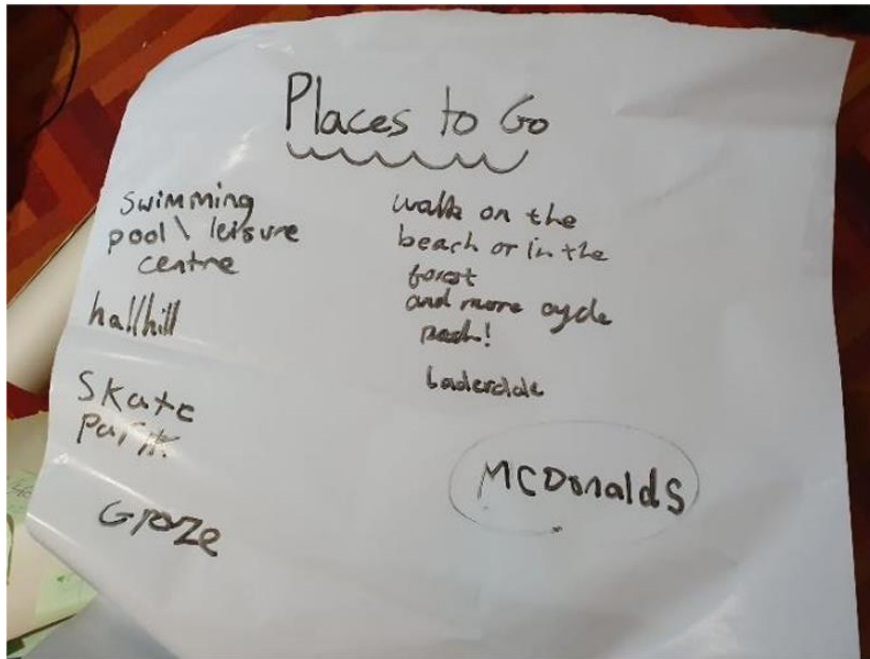 Places to Go
swimming
pool \ leisure
centre
hallhill
Skate
park
Graze
walk on the
beach or in the
forest
and more cycle
path!
Laderdale
MCDonalds